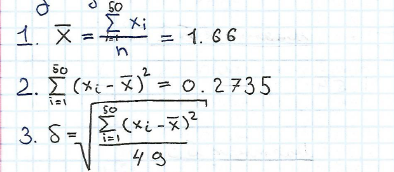 1. x̄ = \frac{\sum_{i=1}^{50} x_i}{n} = 1.66
2. \sum_{i=1}^{50} (x_i - x̄)^2 = 0.2735
3. δ = \sqrt{\frac{\sum_{i=1}^{50} (x_i - x̄)^2}{49}}